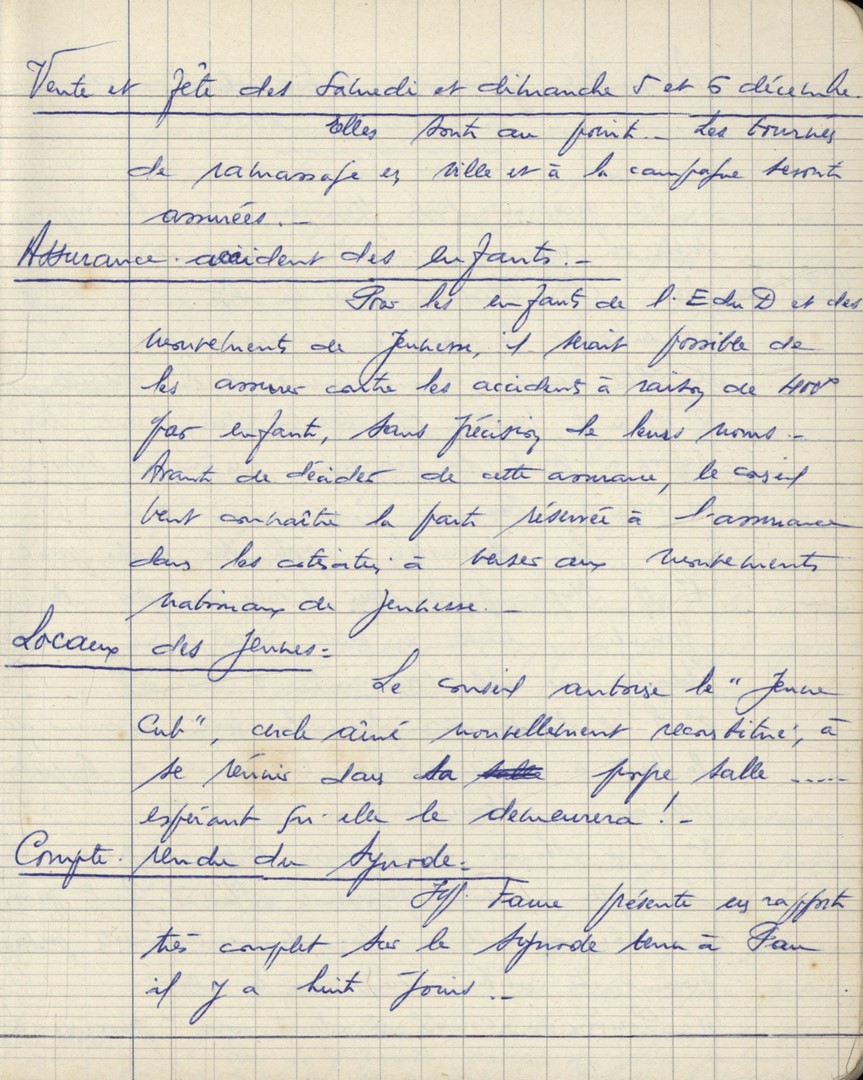 Vente et fête des Samedi et dimanche 5 et 6 décembre.
Elles sont au point._ Les tournées
de ramassage en ville et à la campagne seront
assurées._
Assurance-accident des enfants._
Pour les enfants de l'E du D et des
mouvements de Jeunesse, il serait possible de
les assurer contre les accidents à raison de
par enfant, sans précision de leurs noms._
Avant de décider de cette assurance, le conseil
veut connaître la part réservée à l'assurance
dans les cotisations à verser aux mouvements
nationaux de Jeunesse._
Locaux des Jeunes=
Le conseil autorise le "Jeune
Club", cercle aîné nouvellement reconstitué, à
se réunir dans sa salle propre salle .....
espérant qu'elle le demeurera !_
Compte-rendu du Synode=
Faure présente un rapport
très complet sur le Synode tenu à Pau
il y a huit jours._